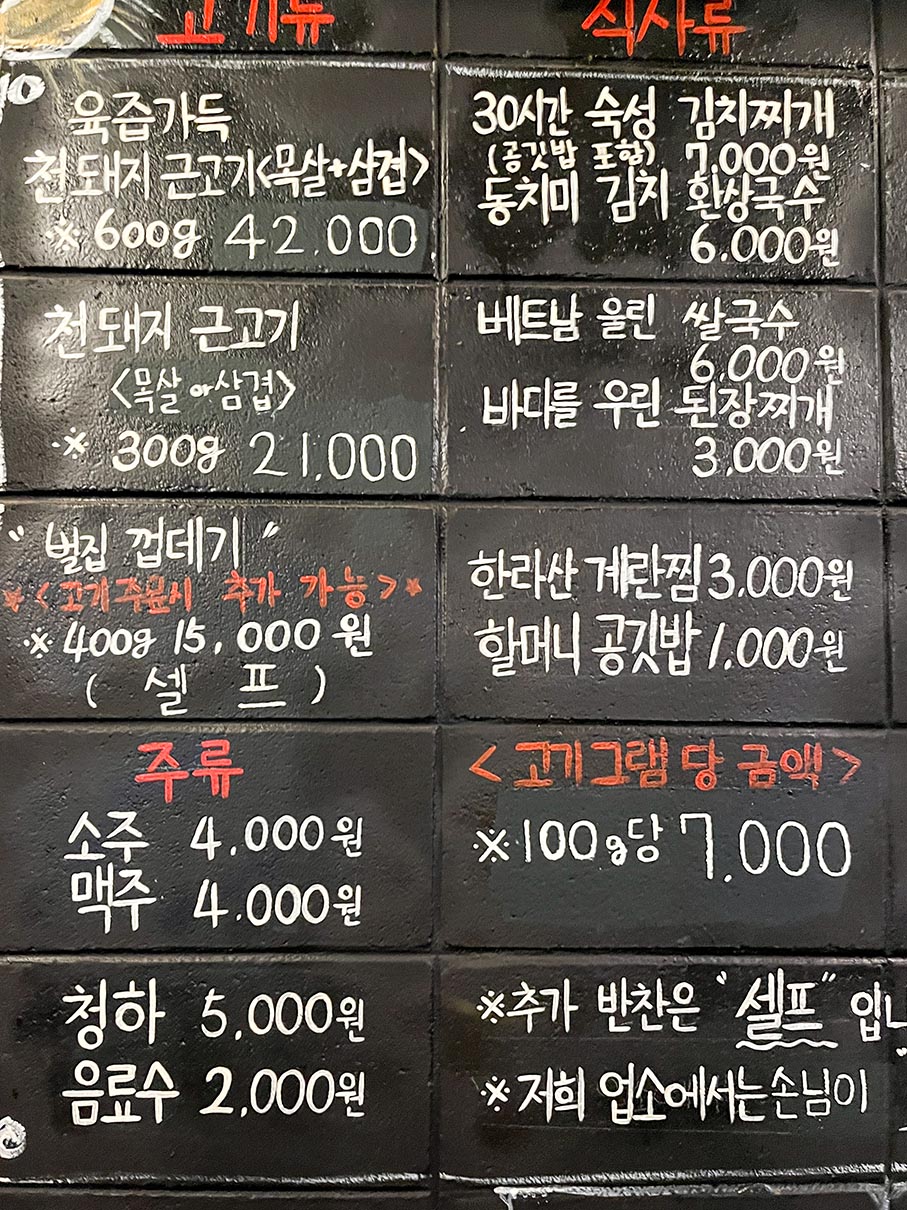 고기류
육즙가득
천돼지 근고기<목살+삼겹>
※ 600g 42,000
천돼지 근고기
<목살 or 삼겹>
※ 300g 21,000
"벌집 껍데기"
*<고기주문시 추가 가능>*
※ 400g 15,000원
(셀 프)
주류
소주 4,000원
맥주 4.000원
청하 5,000원
음료수 2,000원
식사류
30시간 숙성 김치찌개
(공깃밥 포함) 7.000원
동치미 김치 환상국수
6.000원
베트남 울린 쌀국수
6,000원
바다를 우린 된장찌개
3,000원
한라산 계란찜 3.000원
할머니 공깃밥 1.000원
<고기그램 당 금액>
※100g당 7,000
※추가 반찬은 "셀프" 입니
※저희 업소에서는손님이